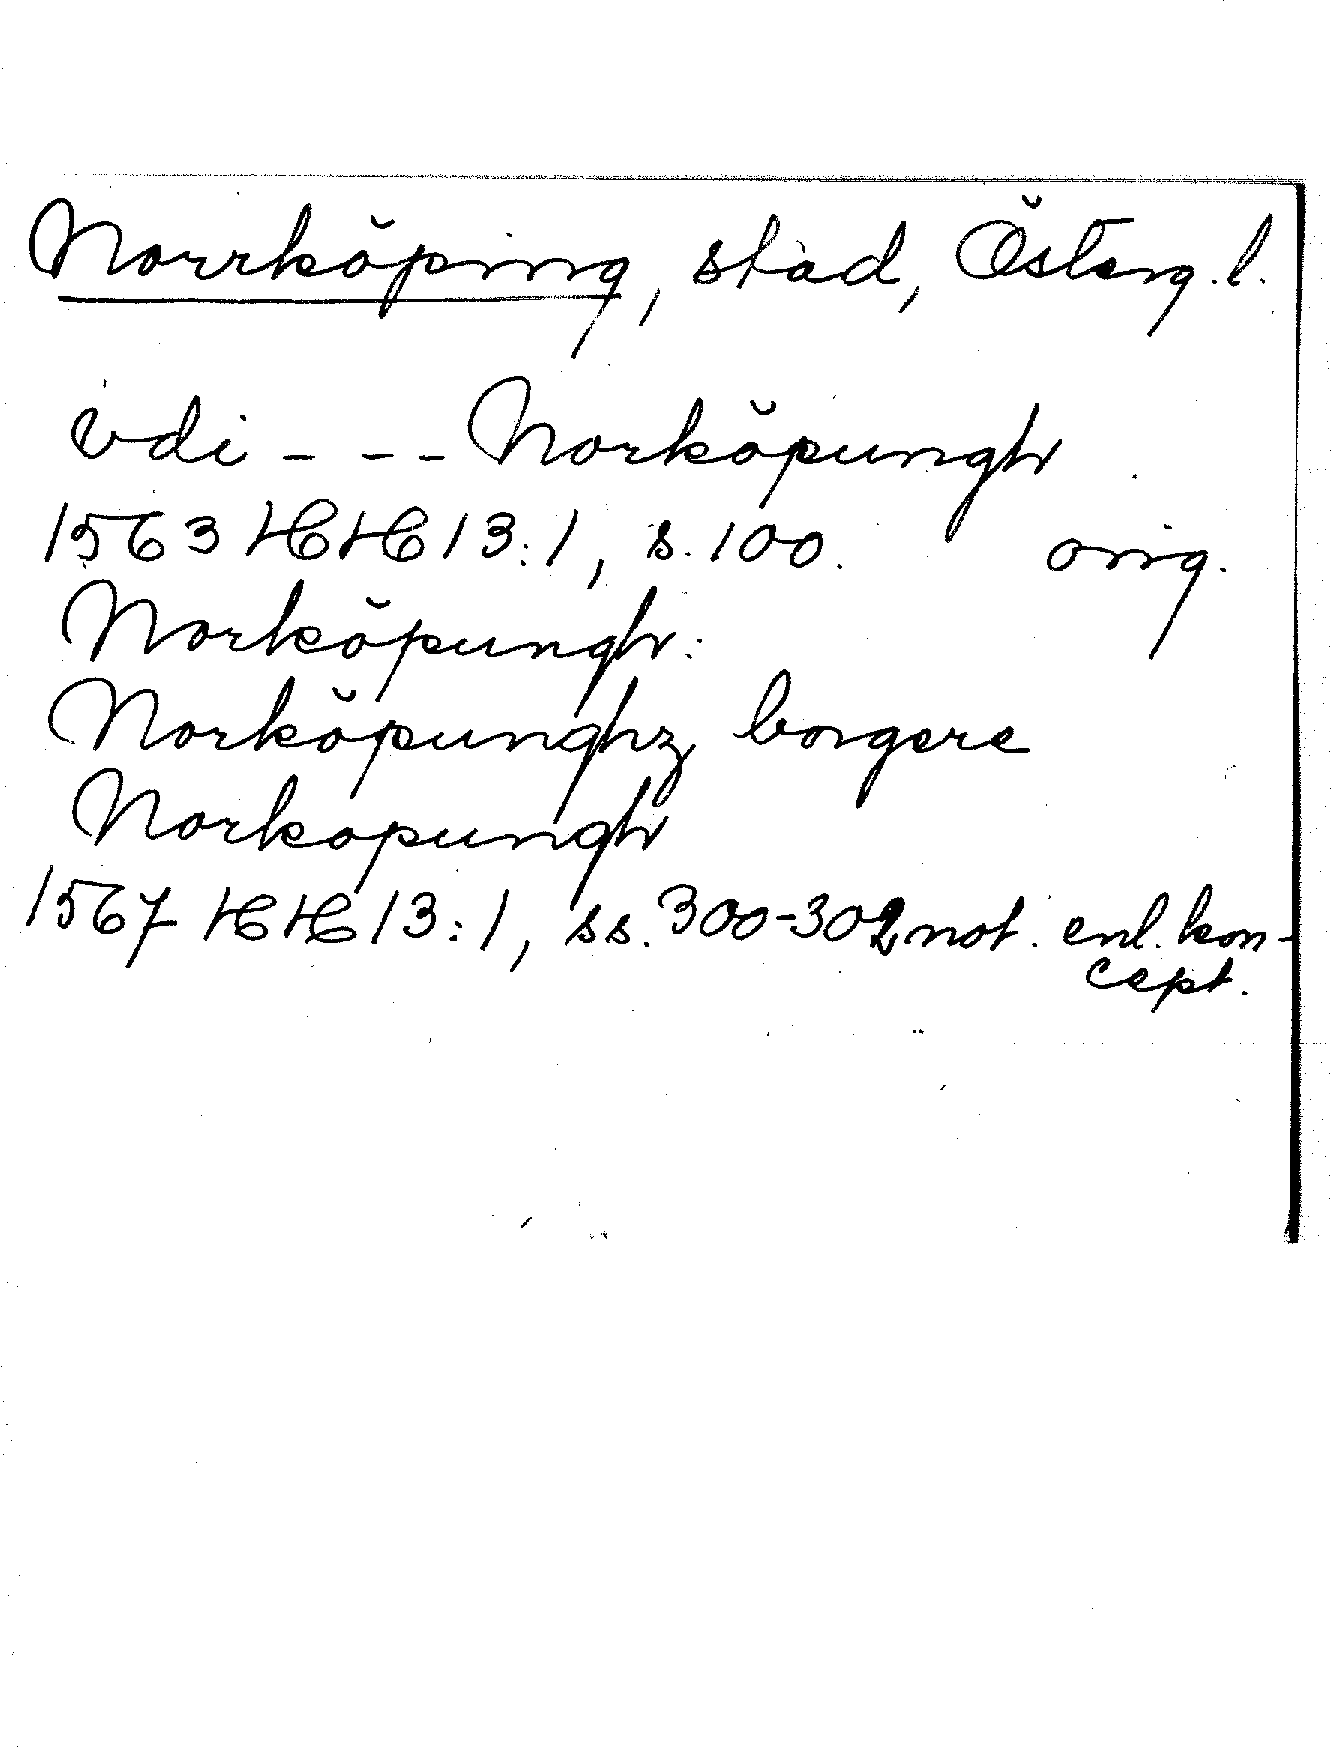 Norrköping, stad, Österg.l.
vdi - - - Norköpungh
1563 HH 13:1, s. 100. orig.
Norköpungh:
Norköpunghz borgere
Norkopungh
1567 HH 13:1, ss. 300-302 not. enl. kon-
cept.